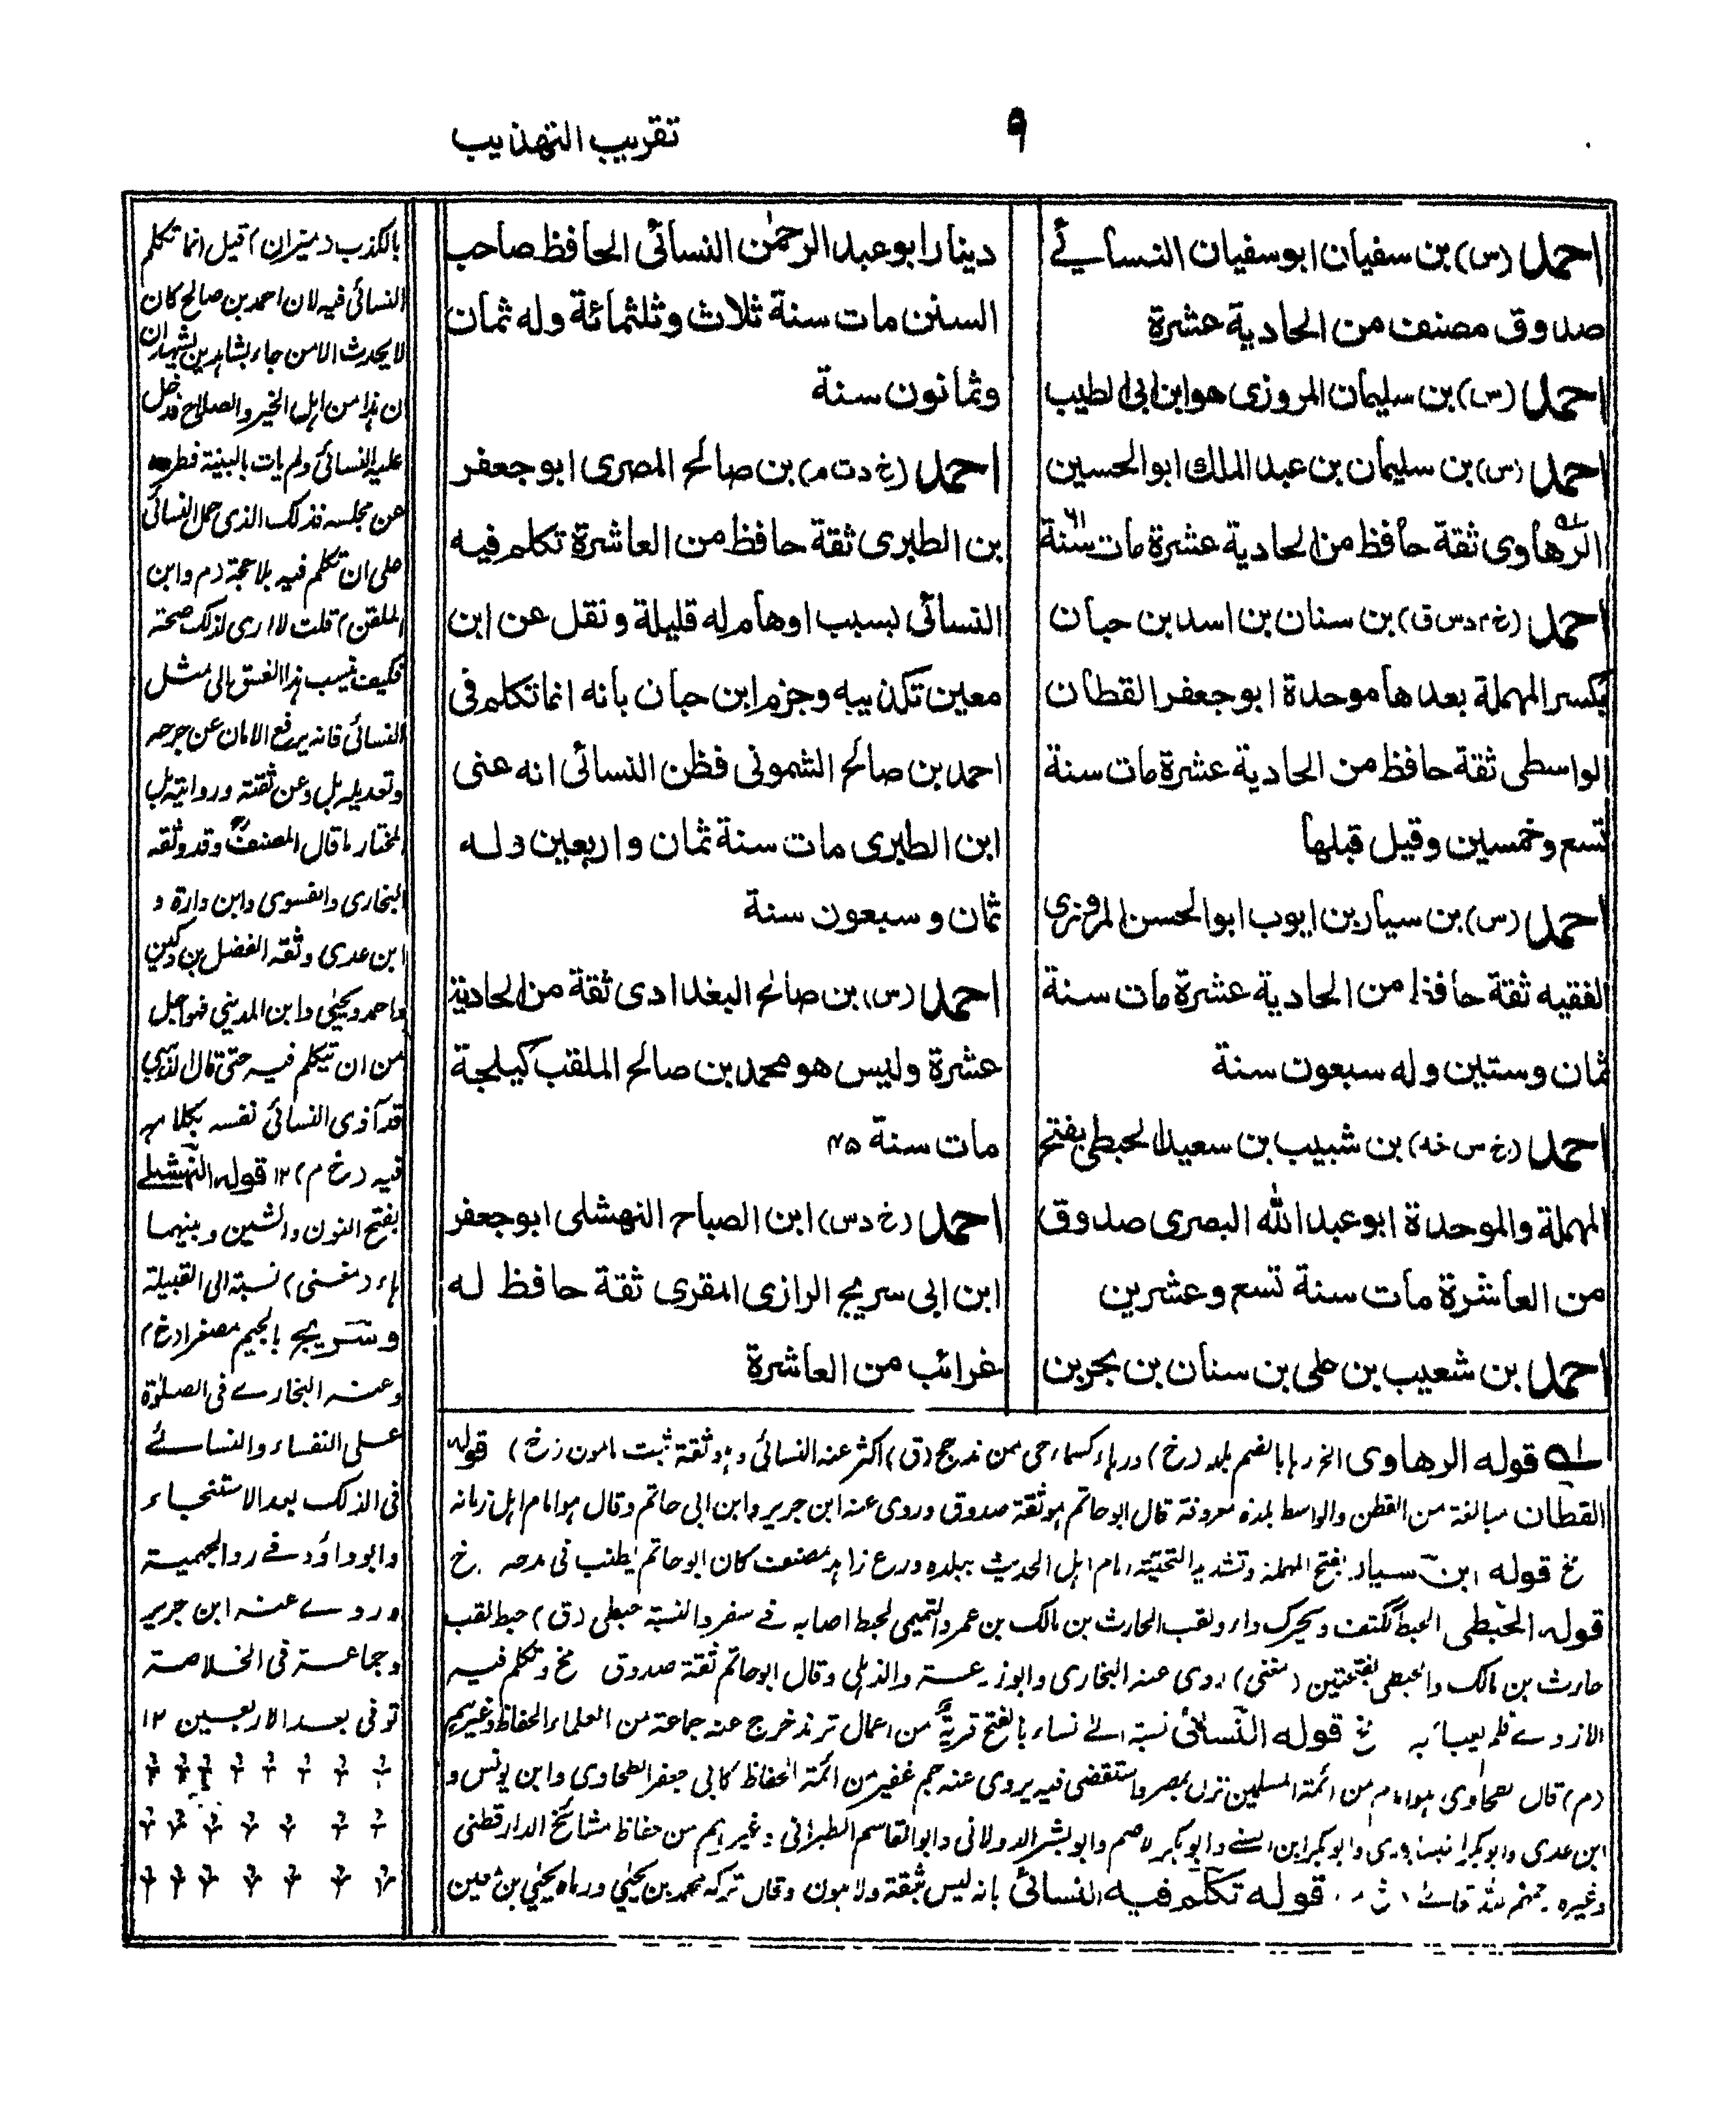 تقريب التهذيب
٩
احمد (س) بن سفيان ابو سفيان النسائے
صدوق مصنف من الحادية عشرة
احمد (س) بن سليمان المروزى هو ابن ابى الطيب
احمد (س) بن سليمان بن عبد الملك ابو الحسين
الرهاوى ثقة حافظ من الحادية عشرة مات سنة ٦١
احمد (خ م د س ق) بن سنان بن اسد بن حبان
بكسر المهملة بعدها موحدة ابو جعفر القطان
الواسطى ثقة حافظ من الحادية عشرة مات سنة
تسع وخمسين وقيل قبلها
احمد (س) بن سيار بن ايوب ابو الحسن المروزى
الفقيه ثقة حافظ من الحادية عشرة مات سنة
ثمان وستين وله سبعون سنة
احمد (خ س خد) بن شبيب بن سعيد الحبطى بفتح
المهملة والموحدة ابو عبد الله البصرى صدوق
من العاشرة مات سنة تسع وعشرين
احمد بن شعيب بن على بن سنان بن بحر بن
دينار ابو عبد الرحمٰن النسائى الحافظ صاحب
السنن مات سنة ثلاث وثلثمائة وله ثمان
وثمانون سنة
احمد (خ د ت م) بن صالح المصرى ابو جعفر
بن الطبرى ثقة حافظ من العاشرة تكلم فيه
النسائى بسبب اوهام له قليلة ونقل عن ابن
معين تكذيبه وجزم ابن حبان بانه انما تكلم فى
احمد بن صالح الشمونى فظن النسائى انه عنى
ابن الطبرى مات سنة ثمان واربعين وله
ثمان وسبعون سنة
احمد (س) بن صالح البغدادى ثقة من الحادية
عشرة وليس هو محمد بن صالح الملقب كيلجة
مات سنة ٤٥
احمد (خ د س) ابن الصباح النهشلى ابو جعفر
ابن ابى سريج الرازى المقرى ثقة حافظ له
غرائب من العاشرة
قوله الرهاوى بالضم بلد (خ) اكثر عنه النسائى وهو ثقة ثبت مامون (خ) قوله
القطان مبالغة من القطن والواسط بلدة معروفة قال ابو حاتم هو ثقة صدوق وروى عنه ابن جرير وابن ابى حاتم وقال هو امام اهل زمانه
خ قوله ابن سيار بفتح المهملة وتشديد التحتية امام اهل الحديث ببلده ورع زاهد مصنف كان ابو حاتم يطنب فى مدحه خ
قوله الحبطى الحبط ككتف ويحرك داء ولقب الحارث بن مالك بن عمرو التميمى لحبط اصابه فے سفر والنسبة حبطى (ق) حبط لقب
حارث بن مالك والحبطى بفتحتين (مغنى) روى عنه البخارى وابو زرعة والذهلى وقال ابو حاتم ثقة صدوق مخ وتكلم فيه
الازدے فلم يعبأ به خ قوله النسائى نسبة الے نساء بالفتح قرية من اعمال ترمذ خرج عنه جماعة من العلماء الحفاظ وغيرهم
(م) قال الطحاوى هو امام من ائمة المسلمين نزل بمصر واستقضى فيه يروى عنه جم غفير من ائمة الحفاظ كابى جعفر الطحاوى وابن يونس و
ابن عدى وابو بكر النيسابورى وابو بكر ابن السنے وابو بكر لاصم وابو بشر الدولابى وابو القاسم الطبرانى وغيرهم من حفاظ مشائخ الدار قطنى
وغيره رحمهم الله تعالے قوله تكلم فيه النسائى بانه ليس بثقة ولا مامون وقال تركه محمد بن يحيٰى ورماه يحيٰى بن معين
بالكذب (ميزان) قيل انما تكلم
النسائى فيه لان احمد بن صالح كان
لا يحدث الا من جاء بشاهدين يشهدان
ان هذا من اهل الخير والصلاح فدخل
عليه النسائى ولم يات بالبينة فطرده
عن مجلسه فذلك الذى حمل النسائى
على ان تكلم فيه بلا حجة (م وابن
الملقن) قلت لا ارى لذلك صحة
فكيف ينسب هذا الفسق الى مثل
النسائى فانه يرفع الامان عن جرحه
وتعديله بل وعن ثقته وروايته بل
المختار ما قال المصنف وقد وثقه
البخارى والفسوى وابن وارة و
ابن عدى وثقه الفضل بن دكين
واحمد ويحيٰى وابن المدينى فهو اجل
من ان يتكلم فيه حتى قال الذهبى
قد آذى النسائى نفسه بكلامه
فيه (خ م) ١٢ قوله النهشلے
بفتح النون والشين وبينهما
هاء (مغنى) نسبة الى القبيلة
وسريج بالجيم مصغرا (خ م)
وعنه البخارے فى الصلوٰة
على النفساء والنسائے
فى الدلك بعد الاستنجاء
وابو داؤد فے رد الجهمية
وروے عنه ابن جرير
وجماعة فى الخلاصة
توفى بعد الاربعين ١٢